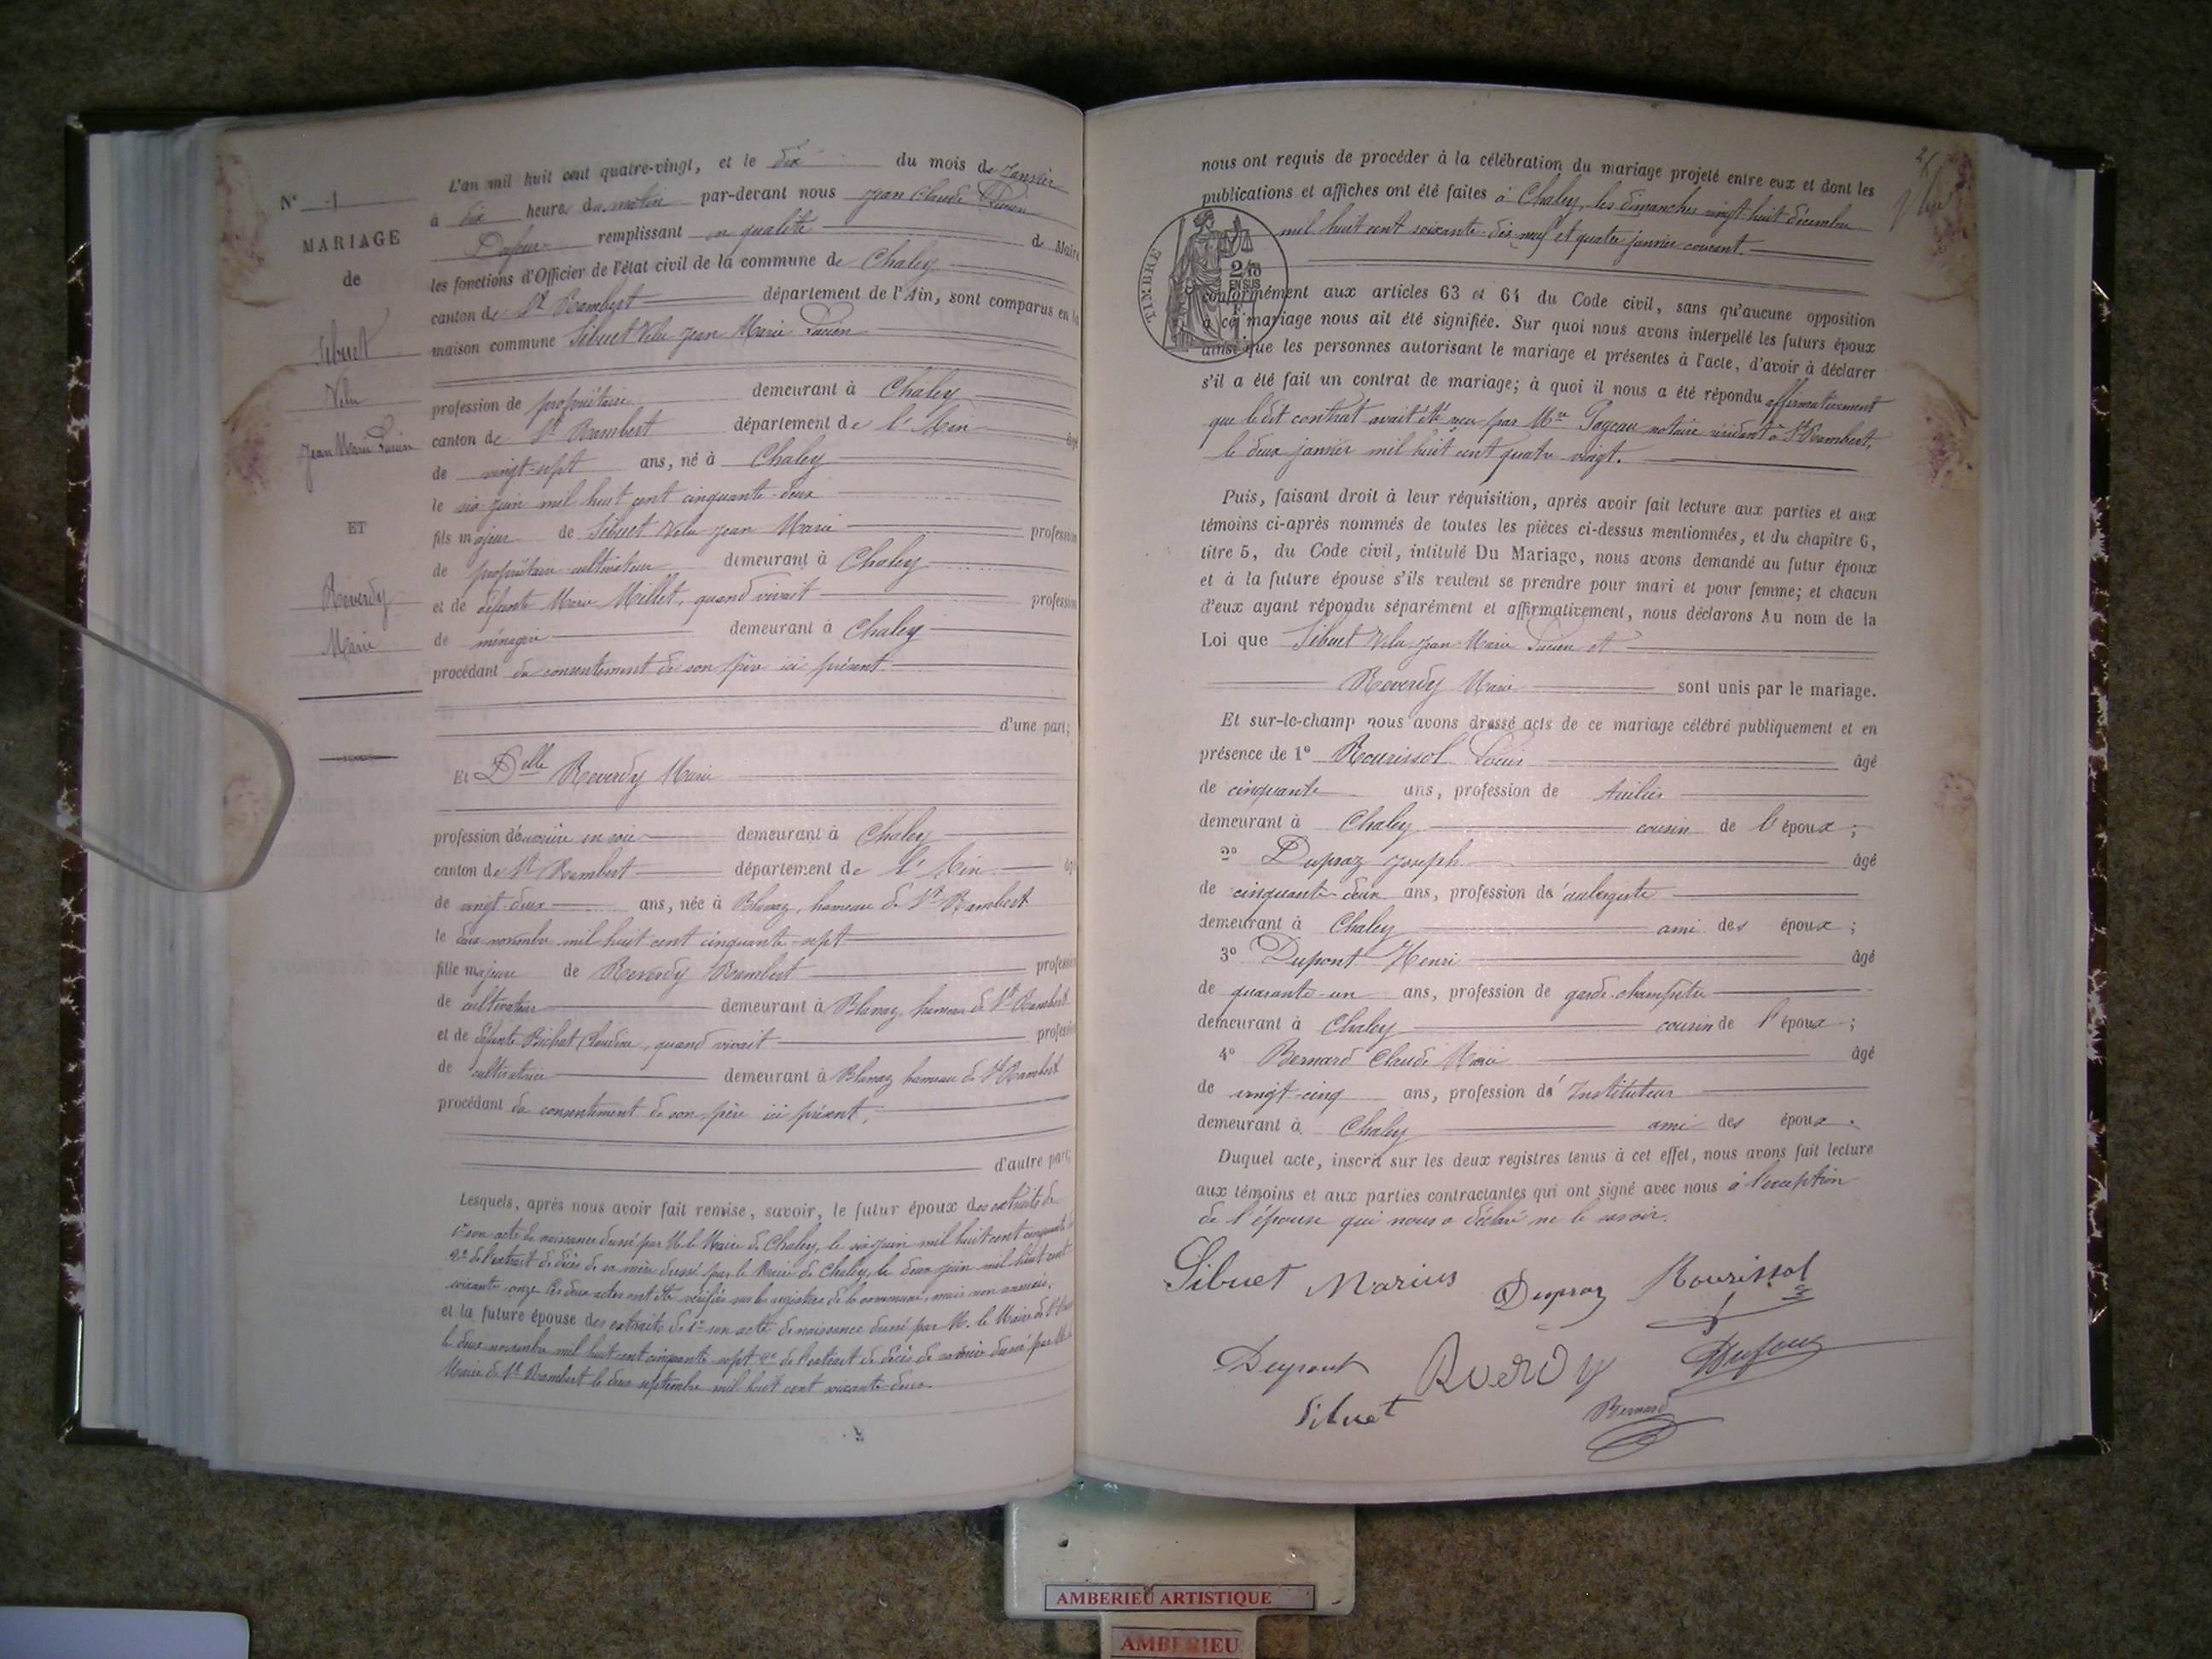 N° 1
MARIAGE
de
Sibuet
Velu
Jean Marie Lucien
ET
Reverdy
Marie
L'an mil huit cent quatre-vingt, et le dix du mois de Janvier
à dix heures du matin par-devant nous Jean Claude Lucien
Dufour remplissant en qualité de Maire
les fonctions d'Officier de l'état civil de la commune de Chaley
canton de St Rambert département de l'Ain, sont comparus en la
maison commune Sibuet Velu Jean Marie Lucien
profession de propriétaire demeurant à Chaley
canton de St Rambert département de l'Ain âgé
de vingt-sept ans, né à Chaley
le six juin mil huit cent cinquante-deux
fils majeur de Sibuet Velu Jean Marie profession
de propriétaire cultivateur demeurant à Chaley
et de défunte Marie Millet, quand vivait profession
de ménagère demeurant à Chaley
procédant du consentement de son père ici présent.
d'une part;
Et Delle Reverdy Marie
profession d'ouvrière en soie demeurant à Chaley
canton de St Rambert département de l'Ain âgé
de vingt-deux ans, née à Blanaz, hameau de St Rambert
le deux novembre mil huit cent cinquante-sept
fille majeure de Reverdy Rambert profession
de cultivateur demeurant à Blanaz, hameau de St Rambert
et de défunte Bichat Claudine, quand vivait profession
de cultivatrice demeurant à Blanaz hameau de St Rambert
procédant du consentement de son père ici présent,
d'autre part;
Lesquels, après nous avoir fait remise, savoir, le futur époux des extraits de
1° son acte de naissance dressé par M. le Maire de Chaley, le six juin mil huit cent cinquante
2° de l'extrait de décès de sa mère dressé par le Maire de Chaley, le deux juin mil huit cent
soixante-onze les deux actes ont été vérifiés sur les registres de la commune, mais non annexés,
et la future épouse des extraits de 1° son acte de naissance dressé par M. le Maire de St
le deux novembre mil huit cent cinquante sept 2° de l'extrait de décès de sa mère dressé par M. le
Maire de St Rambert le deux septembre mil huit cent soixante-deux.
nous ont requis de procéder à la célébration du mariage projeté entre eux et dont les
publications et affiches ont été faites à Chaley, les dimanches vingt-huit décembre
mil huit cent soixante-dix neuf et quatre janvier courant.
TIMBRE
2/10
EN SUS
conformément aux articles 63 et 64 du Code civil, sans qu'aucune opposition
à cet mariage nous ait été signifiée. Sur quoi nous avons interpellé les futurs époux
ainsi que les personnes autorisant le mariage et présentes à l'acte, d'avoir à déclarer
s'il a été fait un contrat de mariage; à quoi il nous a été répondu affirmativement
que ledit contrat avait été reçu par Me Pageau notaire résidant à St Rambert,
le deux janvier mil huit cent quatre vingt.
Puis, faisant droit à leur réquisition, après avoir fait lecture aux parties et aux
témoins ci-après nommés de toutes les pièces ci-dessus mentionnées, et du chapitre 6,
titre 5, du Code civil, intitulé Du Mariage, nous avons demandé au futur époux
et à la future épouse s'ils veulent se prendre pour mari et pour femme; et chacun
d'eux ayant répondu séparément et affirmativement, nous déclarons Au nom de la
Loi que Sibuet Velu Jean Marie Lucien et
Reverdy Marie sont unis par le mariage.
Et sur-le-champ nous avons dressé acte de ce mariage célébré publiquement et en
présence de 1° Rourissol Louis âgé
de cinquante ans, profession de
demeurant à Chaley cousin de l'époux;
2° Dupraz Joseph âgé
de cinquante-deux ans, profession d'aubergiste
demeurant à Chaley ami des époux;
3° Dupont Henri âgé
de quarante-un ans, profession de garde-champêtre
demeurant à Chaley cousin de l'époux;
4° Bernard Claude Marie âgé
de vingt-cinq ans, profession d'Instituteur
demeurant à Chaley ami des époux.
Duquel acte, inscrit sur les deux registres tenus à cet effet, nous avons fait lecture
aux témoins et aux parties contractantes qui ont signé avec nous à l'exception
de l'épouse qui nous a déclaré ne le savoir.
Sibuet Marius Dupraz Rourissol
Dupont Rverdy Dufour
Sibuet Bernard
AMBERIEU ARTISTIQUE
AMBERIEU